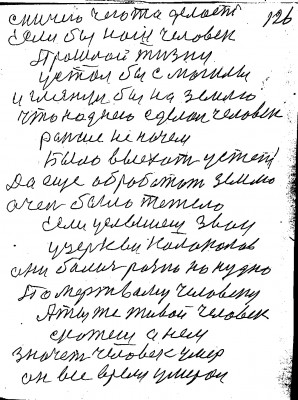 126
с ничего чего та делает
Если бы наш человек
Прошлой жизни
устал бы с могилы
и глянул бы на землю
что на днею сделал человек
раньше не почем
было выехать у степ
Да еще обработат землю
очен было тежело
Если услышеш звон
у церкви колоколов
они бались разно по нудно
По мертвому человеку
А ту же живой человек
скажеш о нем
значет человек умер
он все время умерал